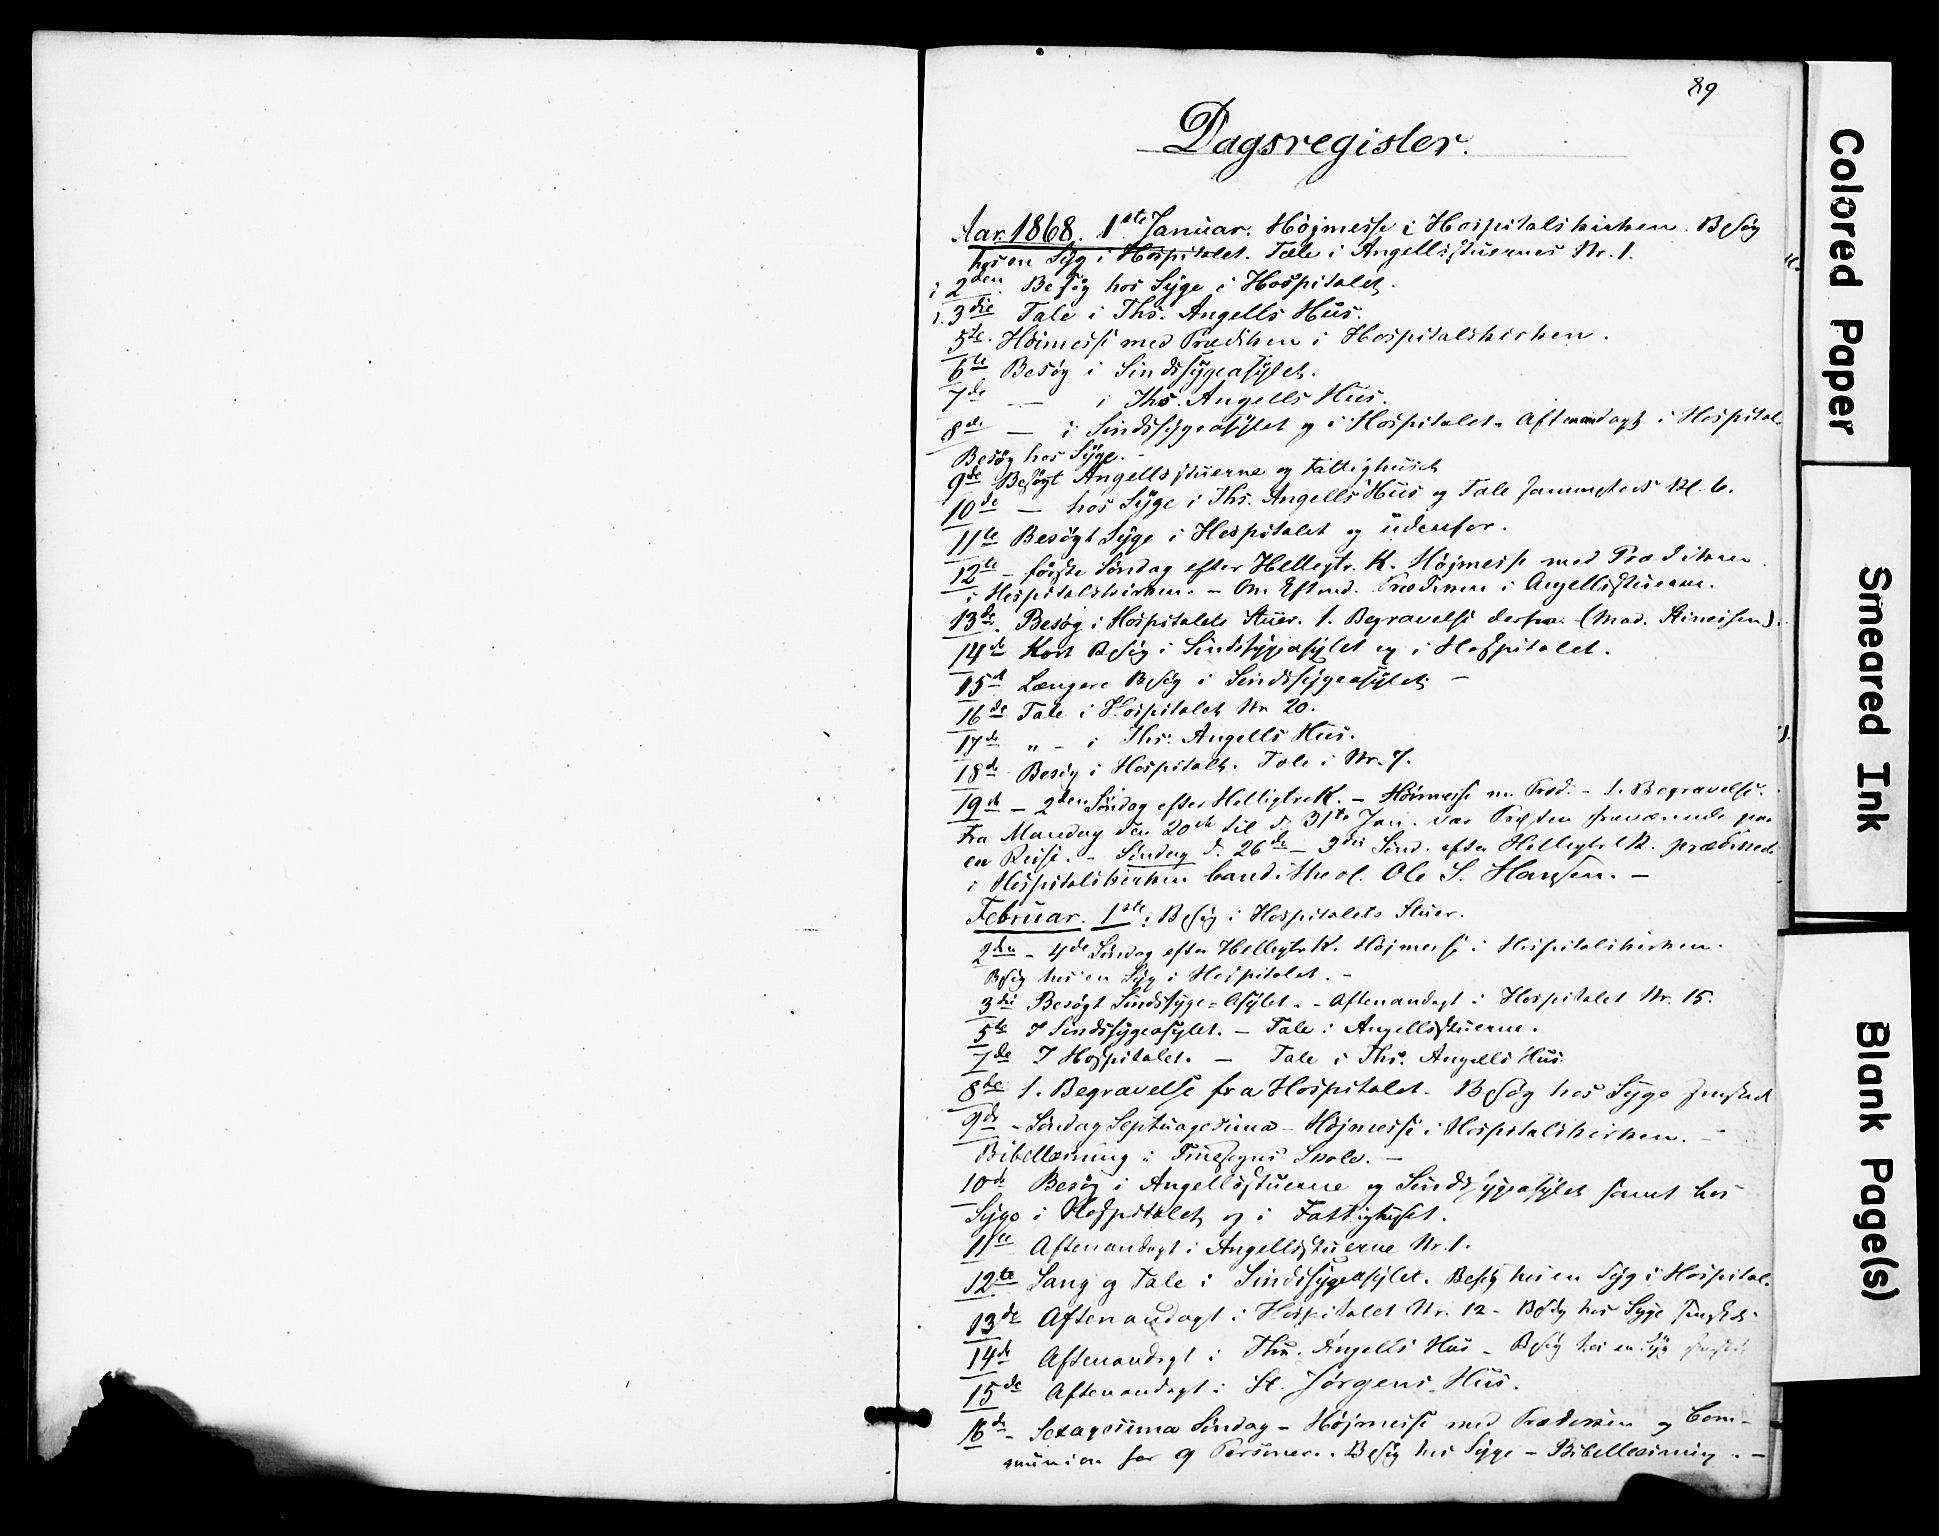 89
Dagsregister.
Aar 1868. 1ste Januar. Højmesse i Hospitalskirken. Besøg
hos en Syg i Hospitalet. Tale i Angellsstuernes Nr. 1.
2den. Besøg hos Syge i Hospitalet.
3die Tale i Ths. Angells Hus.
5te. Høimesse med Prædiken i Hospitalskirken.
6te Besøg i Sindssygeasylet.
7de — i Ths. Angells Hus.
8de — i Sindssygeasylet og i Hospitalet. Aftenandagt i Hospital.
Besøg hos Syge. -
9de Besøgt Angellsstuerne og Fattighuset
10de — hos Syge i Ths. Angells Hus og Tale sammesteds Kl. 6.
11te Besøgt Syge i Hospitalet og udenfor.
12te - første Søndag efter Helligtr. K. Højmesse med Prædiken
i Hospitalskirken. - Om Eftmd. Prædiken i Angellsstuerne.
13de. Besøg i Hospitalets Stuer. 1. Begravelse derfra. (Mad. )
14de Kort Besøg i Sindssygeasylet og i Hospitalet.
15de Længere Besøg i Sindssygeasylet. —
16de Tale i Hospitalet Nr 20.
17de " - i Ths. Angells Hus.
18de Besøg i Hospitalet. Tale i Nr. 7.
19de - 2den Søndag efter HelligtreK. - Høimesse m. Præd. - 1. Begravelse.
Fra Mandag den 20de til d. 31te Jan. var Præsten fraværende paa
en Reise. - Søndag d. 26de - 3die Sønd. efter Helligtr. K. prædikede
i Hospitalskirken Cand. theol. Ole S. Hansen. —
Februar. 1ste: Besøg i Hospitalets Stuer.
2den - 4de Søndag efter Helligtr. K. Højmesse i Hospitalskirken.
Besøg hos en Syg i Hospitalet. -
3die Besøgt Sindssyge=Asylet. - Aftenandagt i Hospitalet Nr. 15.
5te I Sindssygeasylet. - Tale i Angellsstuerne.
7de I Hospitalet. — Tale i Ths. Angells Hus.
8de 1. Begravelse fra Hospitalet. Besøg hos Syge
9de - Søndag Septuagesima - Højmesse i Hospitalskirken. -
Bibellæsning i Skole. -
10de Besøg i Angellsstuerne og Sindssygeasylet samt hos
Syge i Hospitalet og i Fattighuset.
11te Aftenandagt i Angellsstuerne Nr. 1.
12te Sang og Tale i Sindssygeasylet. Besøg hos en Syg i Hospital.
13de Aftenandagt i Hospitalet Nr. 12 - Besøg hos Syge
14de Aftenandagt i Ths. Angells Hus - Besøg hos en Syg
15de Aftenandagt i St. Jørgens Hus.
16de - Sexagesima Søndag - Højmesse med Prædiken og Com-
munion for 9 Personer. Besøg hos Syge - Bibellæsning. —
Colored Paper
Smeared Ink
Blank Page(s)